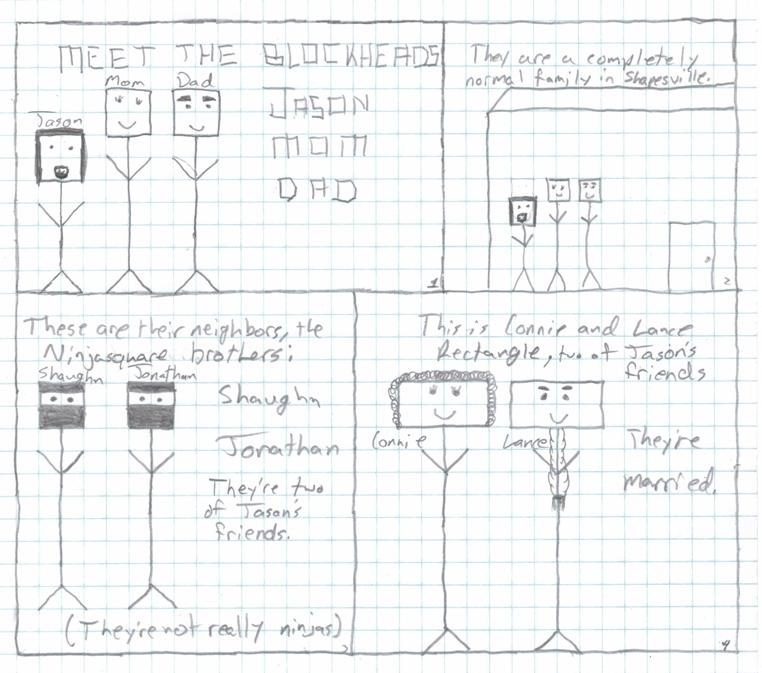 MEET THE BLOCKHEADS
Mom Dad
Jason
JASON
MOM
DAD
1
They are a completely
normal family in Shapesville.
2
These are their neighbors, the
Ninjasquare brothers:
Shaughn Jonathan
Shaughn
Jonathan
They're two
of Jason's
friends.
(They're not really ninjas)
3
This is Connie and Lance
Rectangle, two of Jason's
friends
Connie Lance
They're
married.
4